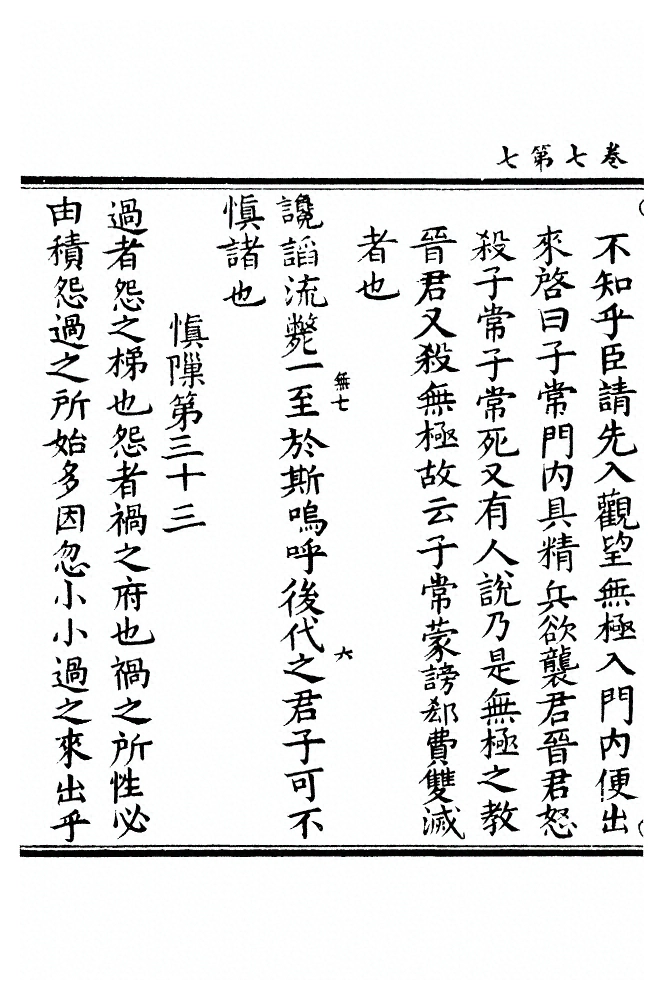 卷七第七
不知乎臣請先入觀望無極入門內便出
來啓曰子常門內具精兵欲襲君晉君怒
殺子常子常死又有人說乃是無極之教
晉君又殺無極故云子常蒙謗郄費雙滅
者也
讒謟流斃一至於斯嗚呼後代之君子可不
無七
六
慎諸也
慎隟第三十三
過者怨之梯也怨者禍之府也禍之所性必
由積怨過之所始多因忽小小過之來出乎